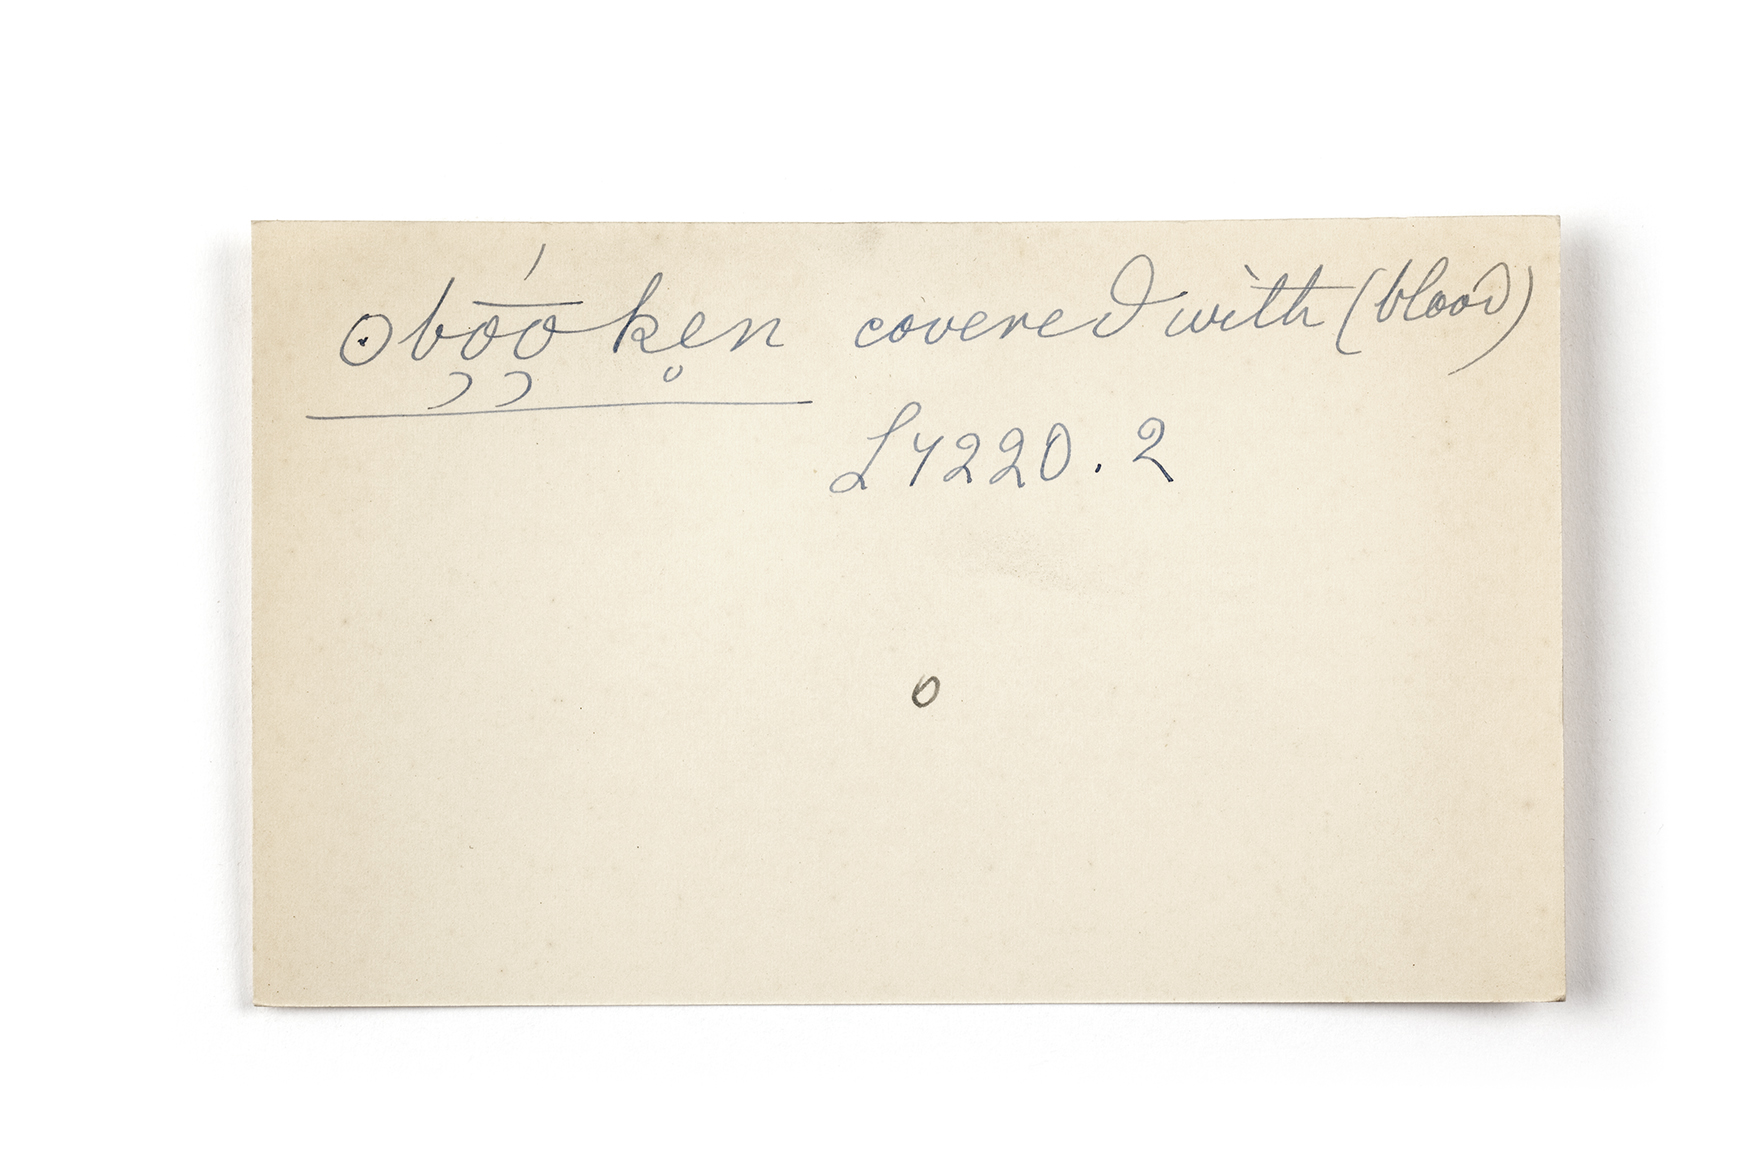 obo̜͞ó̜k̥en covered with (blood)
L4220.2
o